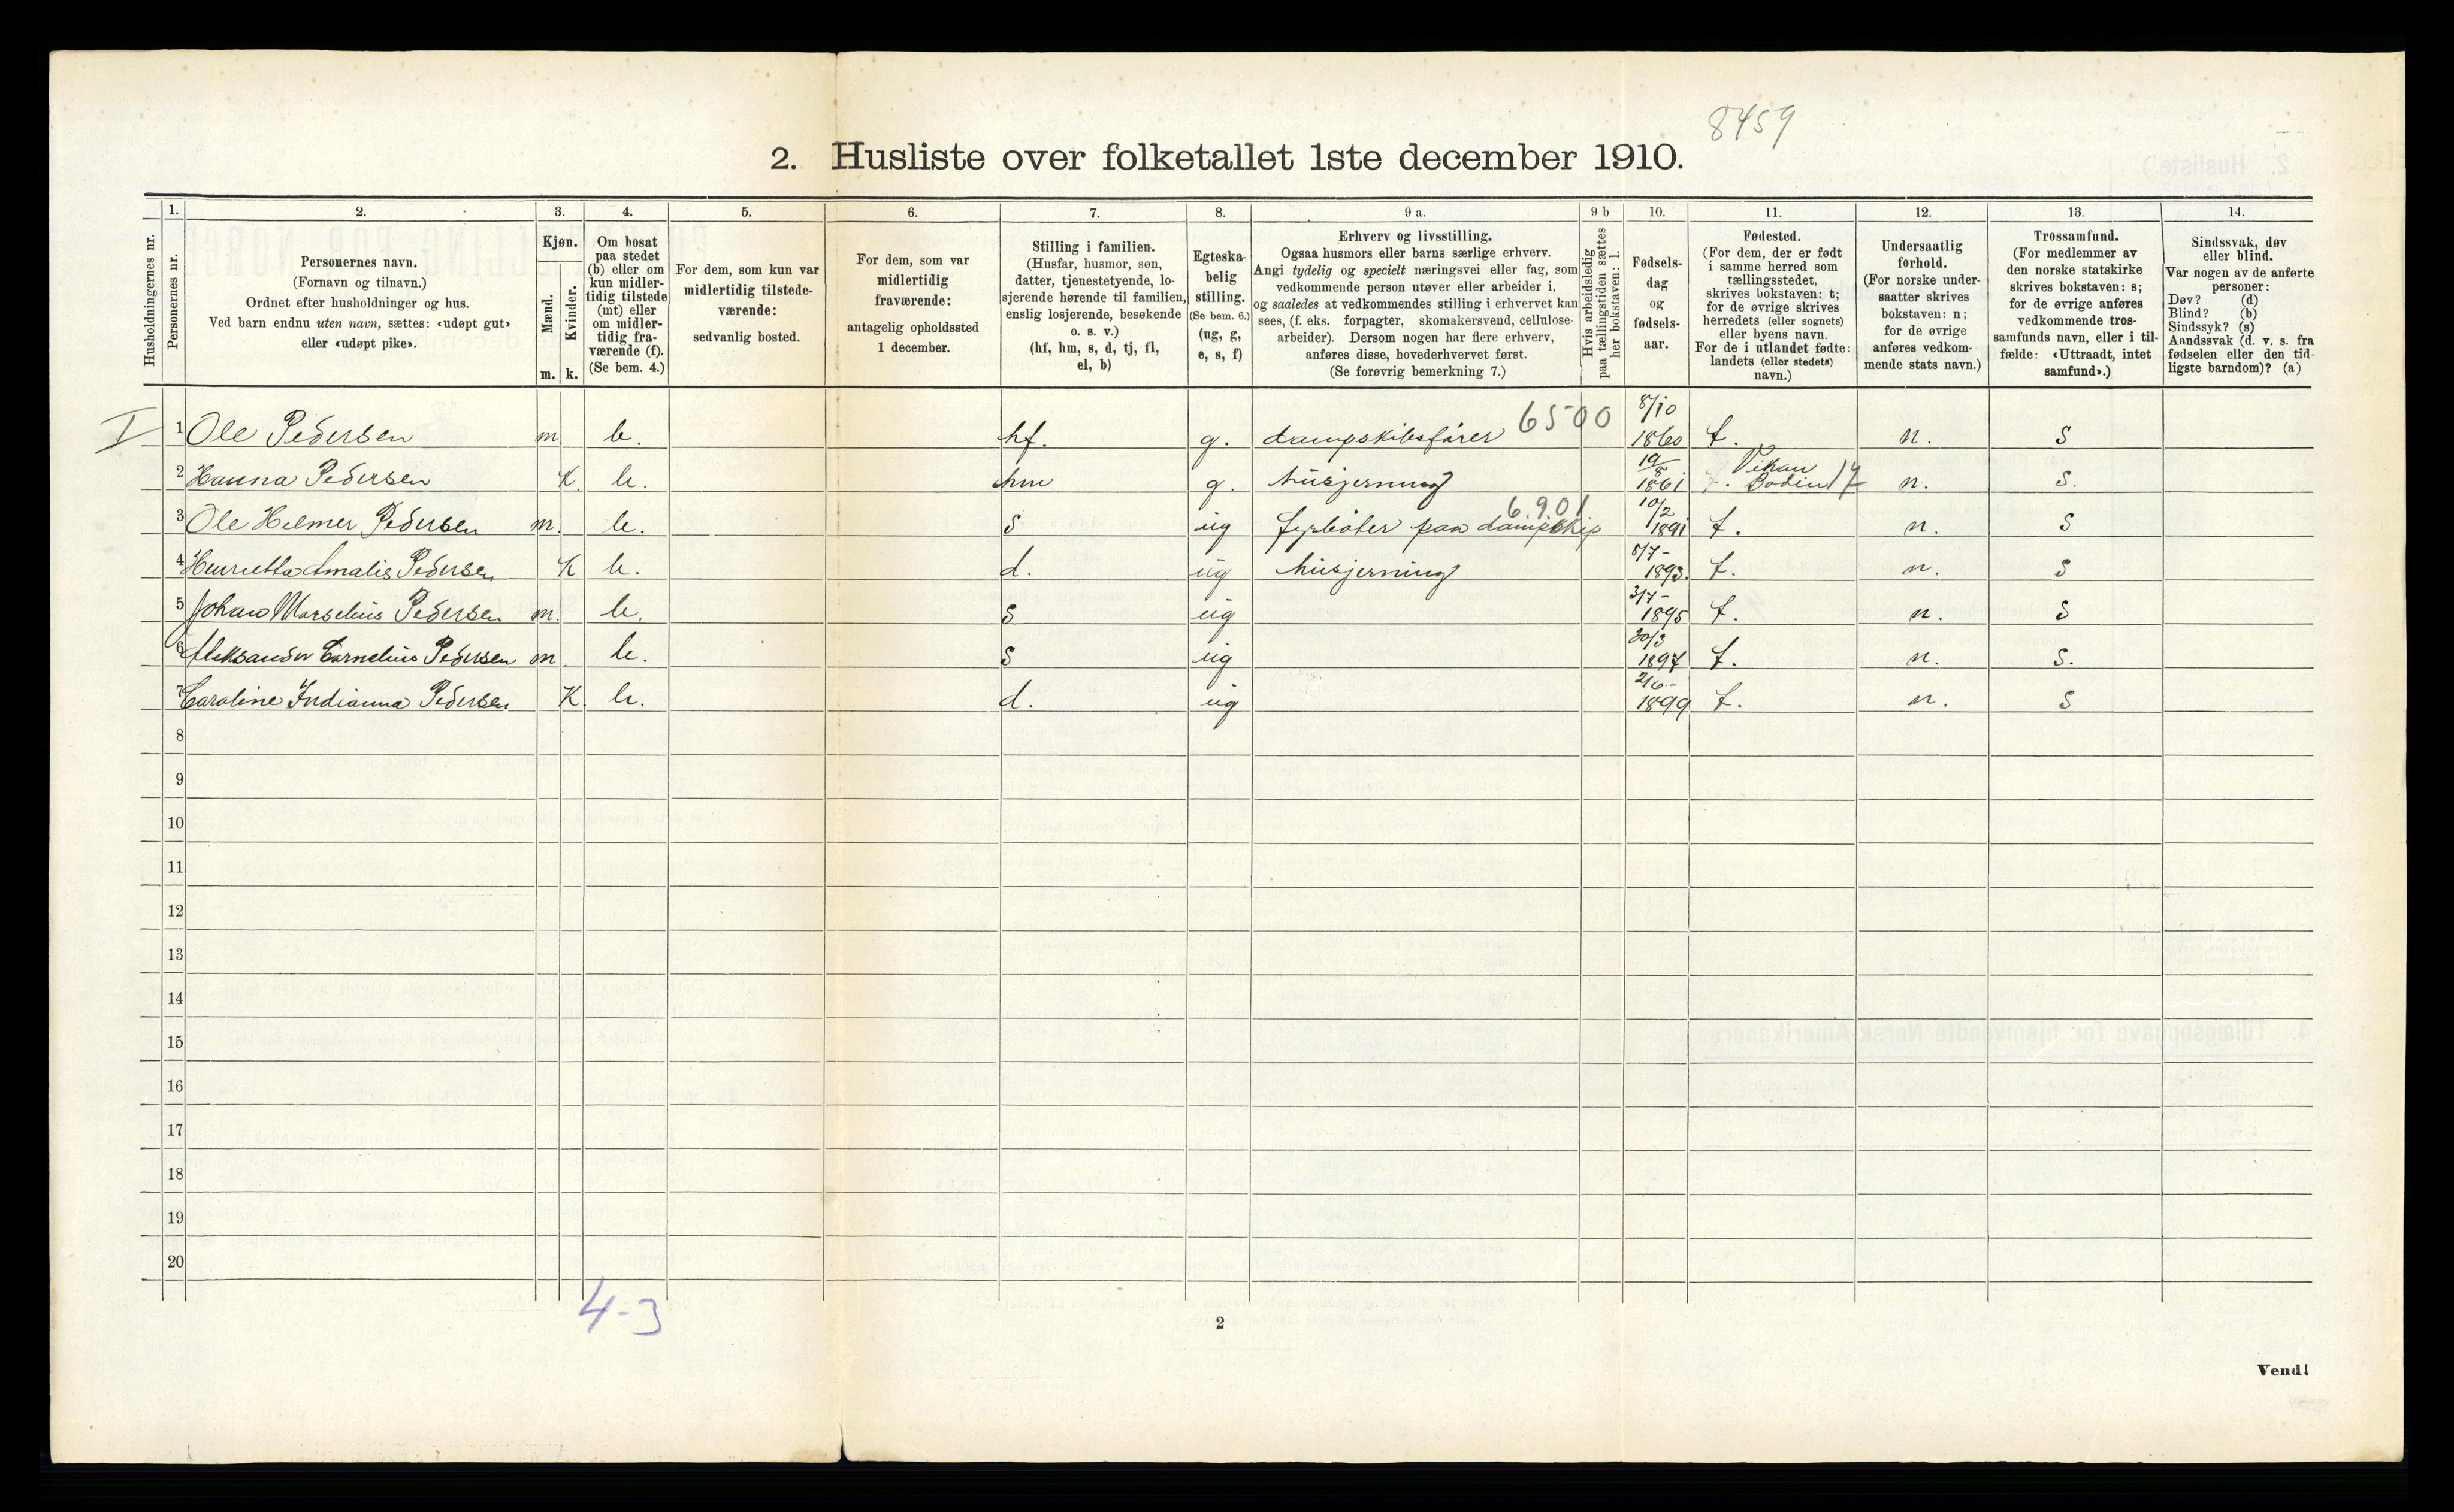 8459
2. Husliste over folketallet 1ste december 1910.
Husholdningernes nr.
1. 2. 3. 4. 5. 6. 7. 8. 9 a. 9 b 10. 11. 12. 13. 14.
Personernes nr.
Personernes navn.
(Fornavn og tilnavn.)
Ordnet efter husholdninger og hus.
Ved barn endnu uten navn, sættes: «udøpt gut»
eller «udøpt pike».
Kjøn.
Mænd.
Kvinder.
m. k.
Om bosat
paa stedet
(b) eller om
kun midler-
tidig tilstede
(mt) eller
om midler-
tidig fra-
værende (f).
(Se bem. 4.)
For dem, som kun var
midlertidig tilstede-
værende:
sedvanlig bosted.
For dem, som var
midlertidig
fraværende:
antagelig opholdssted
1 december.
Stilling i familien.
(Husfar, husmor, søn,
datter, tjenestetyende, lo-
sjerende hørende til familien,
enslig losjerende, besøkende
o. s. v.)
(hf, hm, s, d, tj, fl,
el, b)
Egteska-
belig
stilling.
(Se bem. 6.)
(ug, g,
e, s, f)
Erhverv og livsstilling.
Ogsaa husmors eller barns særlige erhverv.
Angi tydelig og specielt næringsvei eller fag, som
vedkommende person utøver eller arbeider i,
og saaledes at vedkommendes stilling i erhvervet kan
sees, (f. eks. forpagter, skomakersvend, cellulose-
arbeider). Dersom nogen har flere erhverv,
anføres disse, hovederhvervet først.
(Se forøvrig bemerkning 7.)
Hvis arbeidsledig
paa tællingstiden sættes
her bokstaven: l.
Fødsels-
dag
og
fødsels-
aar.
Fødested.
(For dem, der er født
i samme herred som
tællingsstedet,
skrives bokstaven: t;
for de øvrige skrives
herredets (eller sognets)
eller byens navn.
For de i utlandet fødte:
landets (eller stedets)
navn.)
Undersaatlig
forhold.
(For norske under-
saatter skrives
bokstaven: n;
for de øvrige
anføres vedkom-
mende stats navn.)
Trossamfund.
(For medlemmer av
den norske statskirke
skrives bokstaven: s;
for de øvrige anføres
vedkommende tros-
samfunds navn, eller i til-
fælde: «Uttraadt, intet
samfund».)
Sindssvak, døv
eller blind.
Var nogen av de anførte
personer:
Døv? (d)
Blind? (b)
Sindssyk? (s)
Aandssvak (d. v. s. fra
fødselen eller den tid-
ligste barndom)? (a)
I 1 Ole Pedersen m b. hf. g. dampskibsfører 6500 8/10 1860 t. n. S
2 Hanna Pedersen K b. hm g. husgjerning 19/8 1861 Bodin 17 n. S.
3 Ole Helmer Pedersen m. b. S ug fyrbøter paa dampskip 6.901 10/2 1891 t. n. S
4 Henrietta Amalie Pedersen K b. d. ug husgjerning 8/7- 1893. t. n. S
5 Johan Marselius Pedersen m. b. S ug 3/7- 1895 t. n. S
6 Aleksander Cornelius Pedersen m b. S ug 30/3 1897 t. n. S.
7 Caroline Indianna Pedersen K. b. d. ug 2/6- 1899 t. n. S
8
9
10
11
12
13
14
15
16
17
18
19
20
4-3
2
Vend!